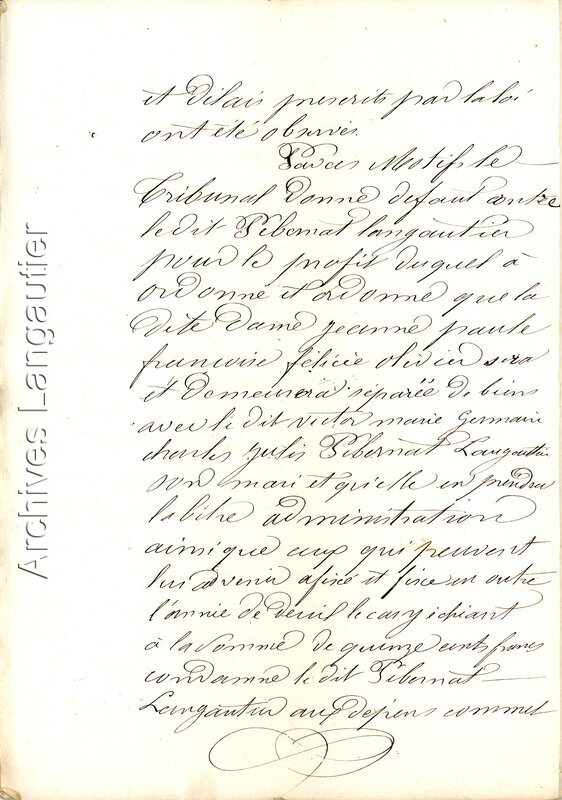 et délais prescrits par la loi
ont été observés
Par ces Motifs le
Tribunal donne defaut contre
le dit Pébernat langautier
pour le profit duquel à
ordonné et ordonne que la
dite Dame jeanne paule
francoise félicie olivier sera
et demeurera séparée de biens
avec le dit victor marie Germain
charles jules Pébernat Langautier
son mari et qu'elle en prendra
la libre administration
ainsi que ceux qui peuvent
lui advenir et fixe en outre
l'année de deuil le cas y échéant
à la somme de quinze cents francs
condamne le dit Pébernat
Langautier aux depens commet
Archives Langautier